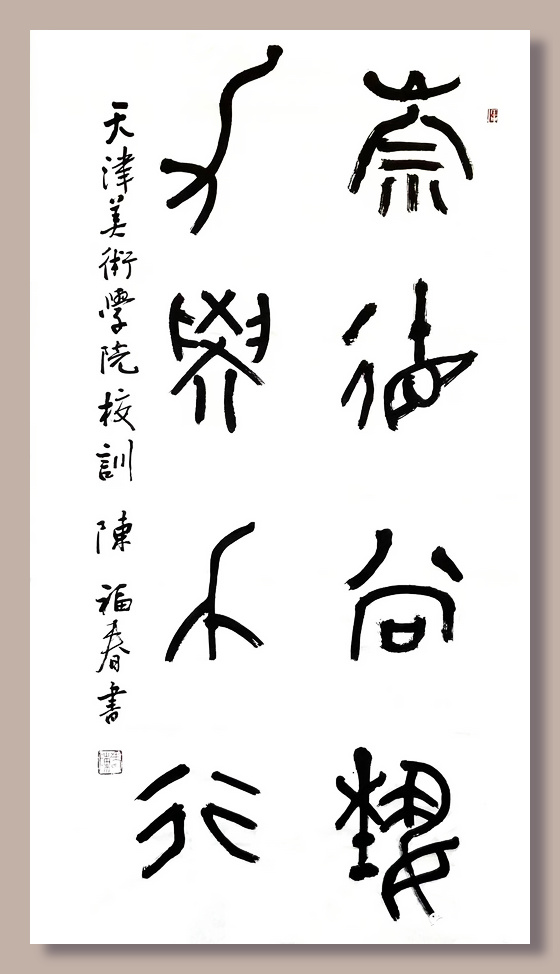 崇德尚藝
力學力行
天津美術學院校訓 陳福春書